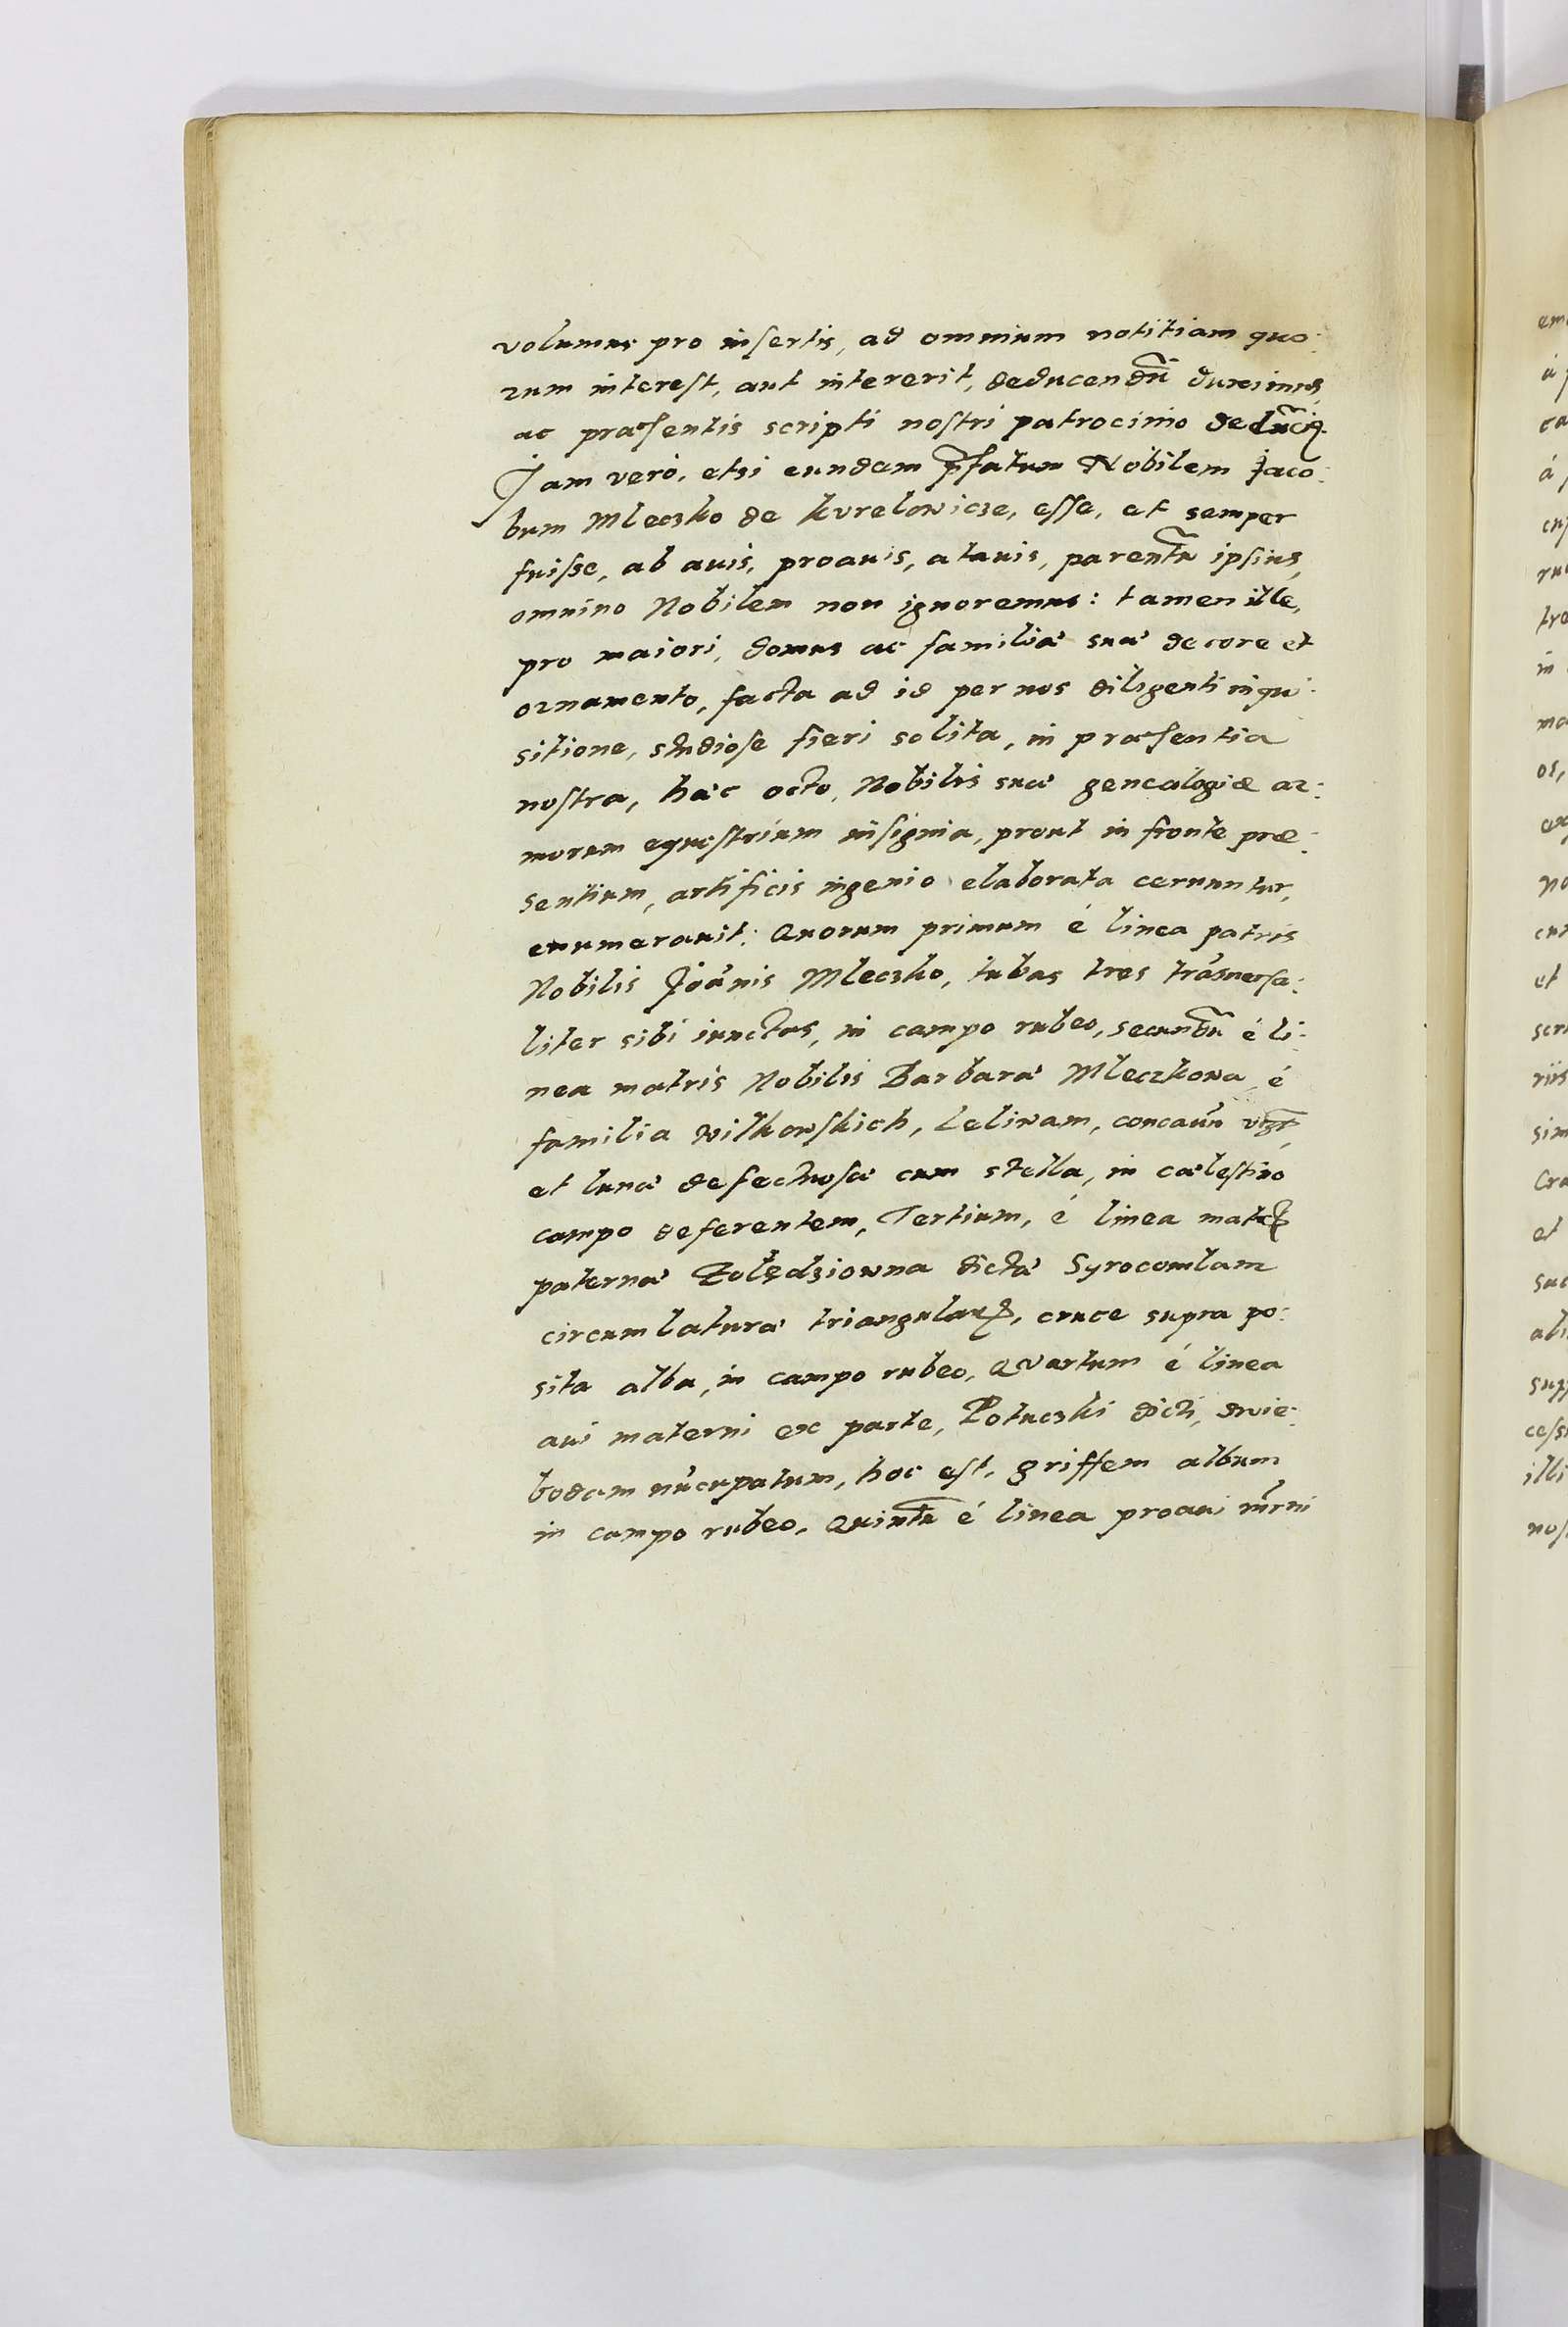 volumus pro insertis, ad omnium notitiam quo:
rum interest, aut intererit, deducendũ duximus,
ac præsentis scripti nostri patrocinio
Jam verò, etsi eundem p̃fatum Nobilem Jaco:
bum Mleczko de Kurelowicze, esse, et semper
fuisse, ab auis, proauis, atauis, parentũ ipsius,
omnino Nobilem non ignoremus: tamen ille,
pro maiori, domus ac familiæ suæ decore et
ornamento, facta ad id per nos diligenti inqui:
sitione, studiose fieri solita, in præsentia
nostra, hæc octo, Nobilis suæ genealogiæ ar:
morum equestrium insignia, prout in fronte præ:
sentium, artificis ingenio elaborata cernuntur,
enumerauit: Quorum primum é linea patris
Nobilis Joãnis Mleczko, tubas tres trãsuersa:
liter sibi iunctas, in campo rubeo, secundũ é li:
nea matris Nobilis Barbaræ Mleczkowa é
familia Wilkowskich, Leliwam, concauũ
et lunæ defectuosæ cum stella, in cælestino
campo deferentem, Tertium, é linea
paternæ Zolędziowna dictæ Syrocomlam
circumlaturæ cruce supra po:
sita alba, in campo rubeo, Quartum é linea
aui materni ex parte, Potuczki dicti, Swie:
bodam nũcupatum, hoc est, griffem album
in campo rubeo, Quintũ é linea proaui m̃rni
em